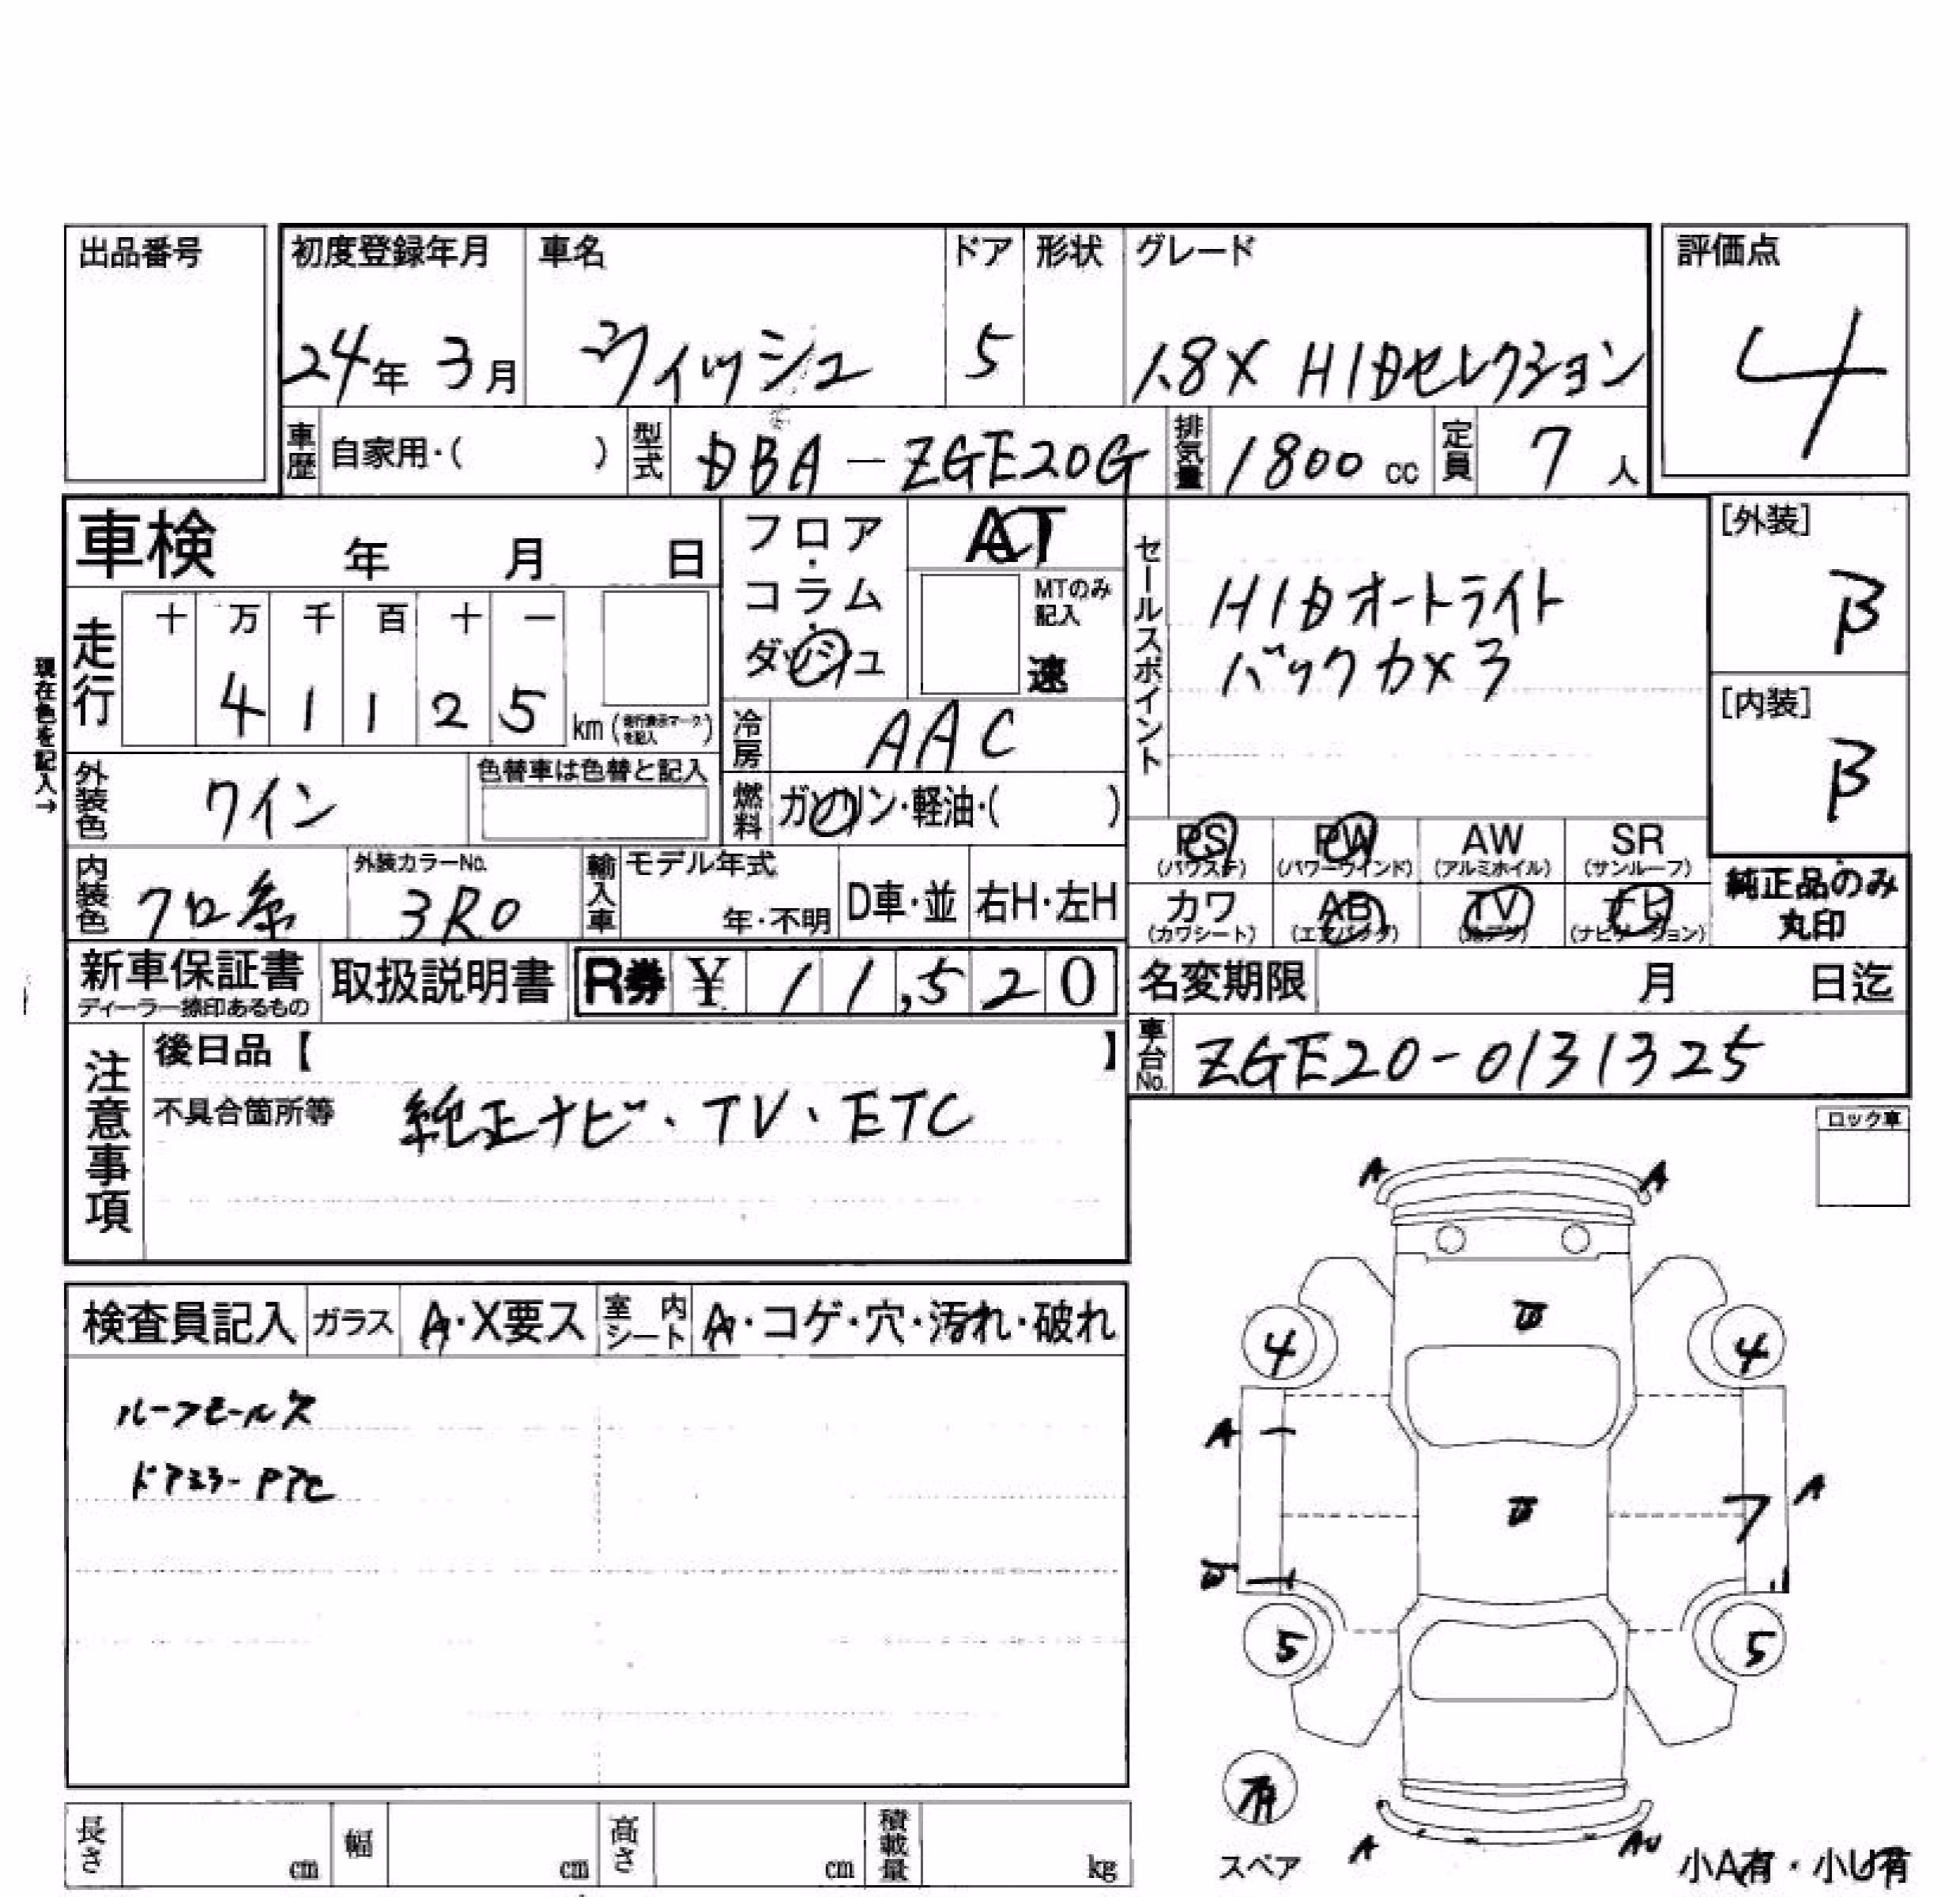 出品番号
初度登録年月 車名 ドア 形状 グレード 評価点
24年 3月 ウィッシュ 5 1.8X HIDセレクション 4
車歴 自家用・( ) 型式 DBA-ZGE20G 排気量 1800 cc 定員 7 人
車検 年 月 日
フロア・コラム・ダッシュ AT
MTのみ記入 速
セールスポイント
HIDオートライト
バックカメラ
[外装] B
[内装] B
現在色を記入→
走行 十 万 千 百 十 一
4 1 1 2 5 km (走行表示マークを記入)
冷房 AAC
外装色 ワイン 色替車は色替と記入
燃料 ガソリン・軽油・( )
PS (パワステ) PW (パワーウインド) AW (アルミホイル) SR (サンルーフ)
カワ (カワシート) AB (エアバック) TV ナビ (ナビゲーション)
純正品のみ
丸印
内装色 クロ系 外装カラーNo. 3R0 輸入車 モデル年式 年・不明 D車・並 右H・左H
新車保証書 ディーラー捺印あるもの 取扱説明書 R券 ¥ 11,520
名変期限 月 日迄
車台No. ZGE20-0131325
注意事項
後日品【 】
不具合箇所等 純正ナビ・TV・ETC
ロック車
検査員記入 ガラス A・X要ス 室内シート A・コゲ・穴・汚れ・破れ
ルーフモール欠
A A
4 4
A
7 A
5 5
有
スペア
A AU
小A有・小U有
長さ cm 幅 cm 高さ cm 積載量 kg